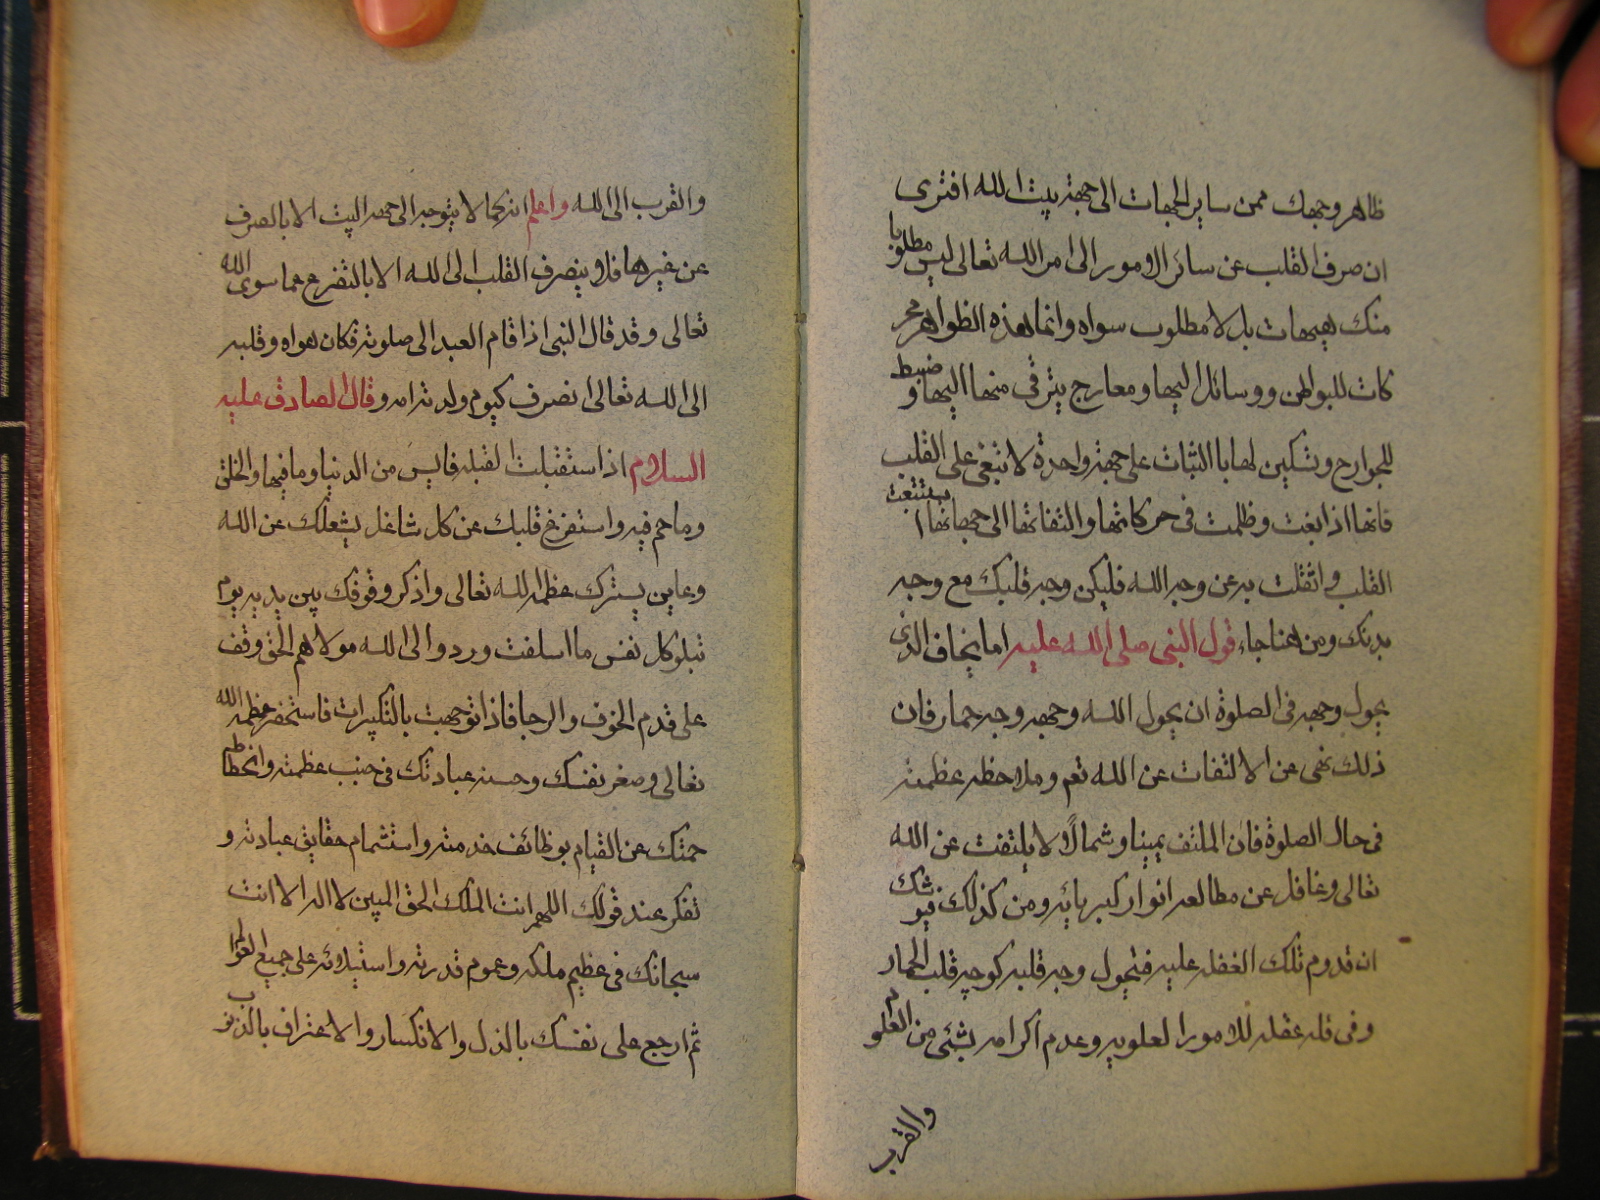 ظاهر وجهك ممن ساير الجهات الى جهة بيت الله افترى
ان صرف القلب عن سائر الامور الى امر الله تعالى ليس مطلوبا
منك هيهات بل لا مطلوب سواه وانما هذه الظواهر محر
كات للبواطن ووسائل اليها ومعارج يترقى منها اليها وضبط
للجوارح وتسكين لها بالثبات على جهة واحدة لا تبغى على القلب
فانها اذا بغت وظلمت فى حركاتها والتفاتها الى جهاتها استتبعت
القلب وانقلت به عن وجه الله فليكن وجه قلبك مع وجه
بدنك ومن هنا جاء قول النبى صلى الله عليه اما يخاف الذى
يحول وجهه فى الصلوة ان يحول الله وجهه وجه حمار فان
ذلك نهى عن الالتفات عن الله تعم وملاحظه عظمته
فى حال الصلوة فان الملتف يمينا وشمالا ولا يلتفت عن الله
تعالى وغافل عن مطالعه انوار كبريائه ومن كذلك فيوشك
ان تدوم تلك الغفله عليه فيحول وجه قلبه كوجه قلب الحمار
وفى قله عقله للامور العلويه وعدم اكرامه بشئى من العلوم
والقرب
والقرب الى الله واعلم انه كما لا يتوجه الى جهه البيت الا بالصرف
عن غيرها فلا ينصرف القلب الى الله الا بالتفرع عما سوى الله
تعالى وقد قال النبى اذا قام العبد الى صلوته فكان هواه وقلبه
الى الله تعالى انصرف كيوم ولدته امه وقال الصادق عليه
السلام اذا استقبلت القبله فايس من الدنيا وما فيها والخلق
وما هم فيه واستفرغ قلبك عن كل شاغل يشغلك عن الله
وعاين بسترك عظمه الله تعالى واذكر وقوفك بين يديه يوم
تبلو كل نفس ما اسلفت وردوا الى الله مولاهم الحق وقف
على قدم الخوف والرجا فاذا توجهت بالتكبيرات فاستحضر عظمه الله
تعالى وصغر نفسك وحسنه عبادتك فى جنب عظمته وانحطاط
همتك عن القيام بوظائف خدمته واستتمام حقايق عبادته و
تفكر عند قولك اللهم انت الملك الحق المبين لا اله الا انت
سبحانك فى عظيم ملكه وعموم قدرته واستيلائه على جميع العوالم
ثم ارجع على نفسك بالذل والانكسار والاعتراف بالذنوب